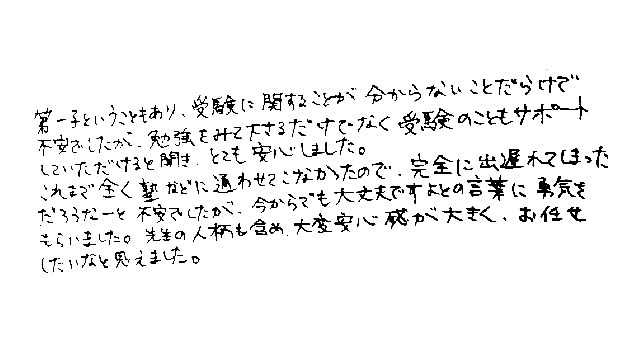 第一子ということもあり、受験に関することが分からないことだらけで
不安でしたが、勉強をみて下さるだけでなく受験のこともサポート
していただけると聞き、とても安心しました。
これまで全く塾などに通わせてこなかったので、完全に出遅れてしまった
だろうなーと不安でしたが、今からでも大丈夫ですよとの言葉に勇気を
もらいました。先生の人柄も含め、大変安心感が大きく、お任せ
したいなと思えました。